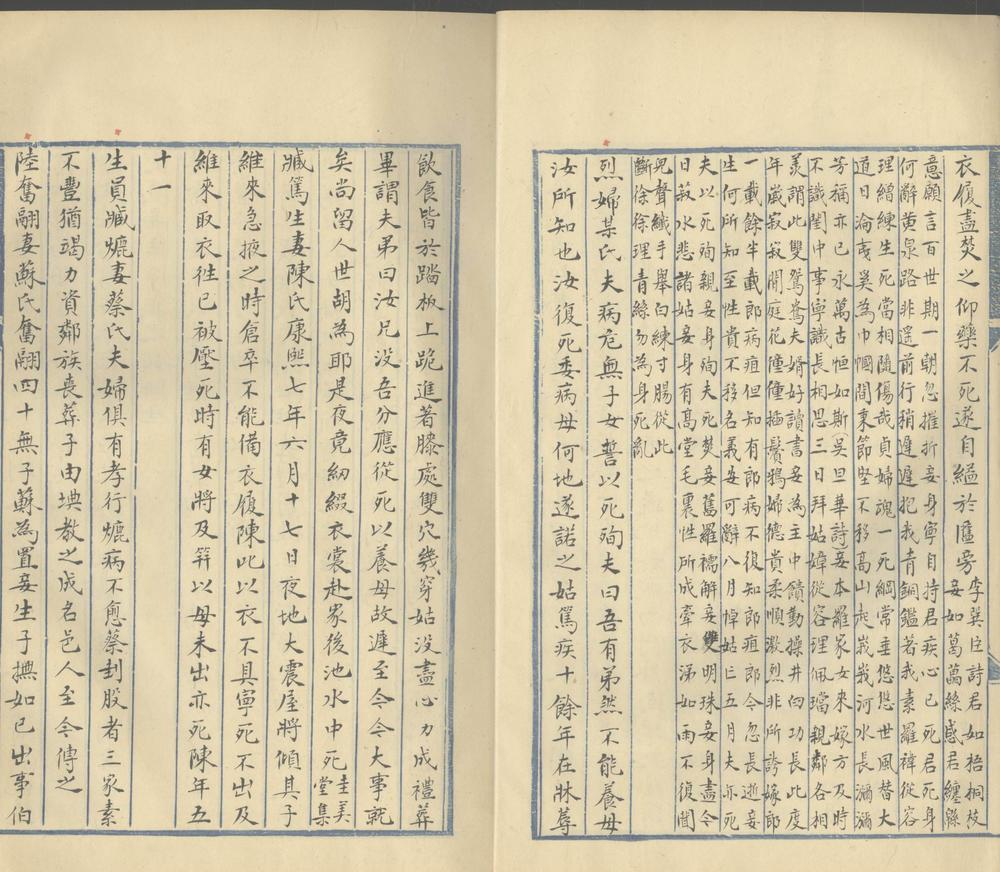 衣履盡焚之仰藥不死遂自縊於匶旁李巽臣詩君如梧桐枝
妾如蔦蘿絲感君纏緜
意願言百世期一朝忽摧折妾身寧自持君疾心已死君死身
何辭黄泉路非遥前行稍遲遲抱我青銅鑑著我素羅褘從容
理繒練生死當相隨傷哉貞婦魂一死綱常垂悠悠世風替大
道日淪夷奚為巾幗間柬節堅不移高山起峩峩河水長瀰瀰
芳福亦已永萬古恒如斯吳旦華詩妾本羅家女來嫁方及時
不識閨中事寧識長相思三日拜姑嫜從容理佩璫親鄰各相
羨謂此雙鴛鴦夫婿好讀書妾為主中饋勤操井臼功長此度
年歲寂寂閒庭花僮僮插鬢鴉婦德貴柔順激烈非所誇嫁郎
一載餘半載郎病疽但知有郎病不復知郎疽郎今忽長逝妾
生何所知至性貴不移名義妾可辭八月悼姑亡五月夫亦死
夫以死殉親妾身殉夫死焚妾舊羅襦解妾雙明珠妾身盡今
日菽水悲諸姑妾身有高堂毛裏性所成牽衣涕如雨不復聞
兒聲纖手舉白練寸腸從此
斷徐徐理青絲勿為身死亂
烈婦某氏夫病危無子女誓以死殉夫曰吾有弟然不能養母
汝所知也汝復死委病母何地遂諾之姑篤疾十餘年在牀蓐
飲食皆於踏板上跪進著膝處雙穴幾穿姑没盡心力成禮葬
畢謂夫弟曰汝兄没吾分應從死以養母故遲至今今大事就
矣尚留人世胡為耶是夜竟紉綴衣裳赴家後池水中死圭美
堂集
臧篤生妻陳氏康熙七年六月十七日夜地大震屋將傾其子
維來急掖之時倉卒不能備衣履陳此以衣不具寧死不出及
維來取衣徃已被壓死時有女將及笄以母未出亦死陳年五
十一
生員臧熝妻蔡氏夫婦俱有孝行熝病不愈蔡刲股者三家素
不豐猶竭力資鄰族喪葬子由㙉教之成名邑人至今傳之
陸奮翮妻蘇氏奮翮四十無子蘇為置妾生子撫如已出事伯